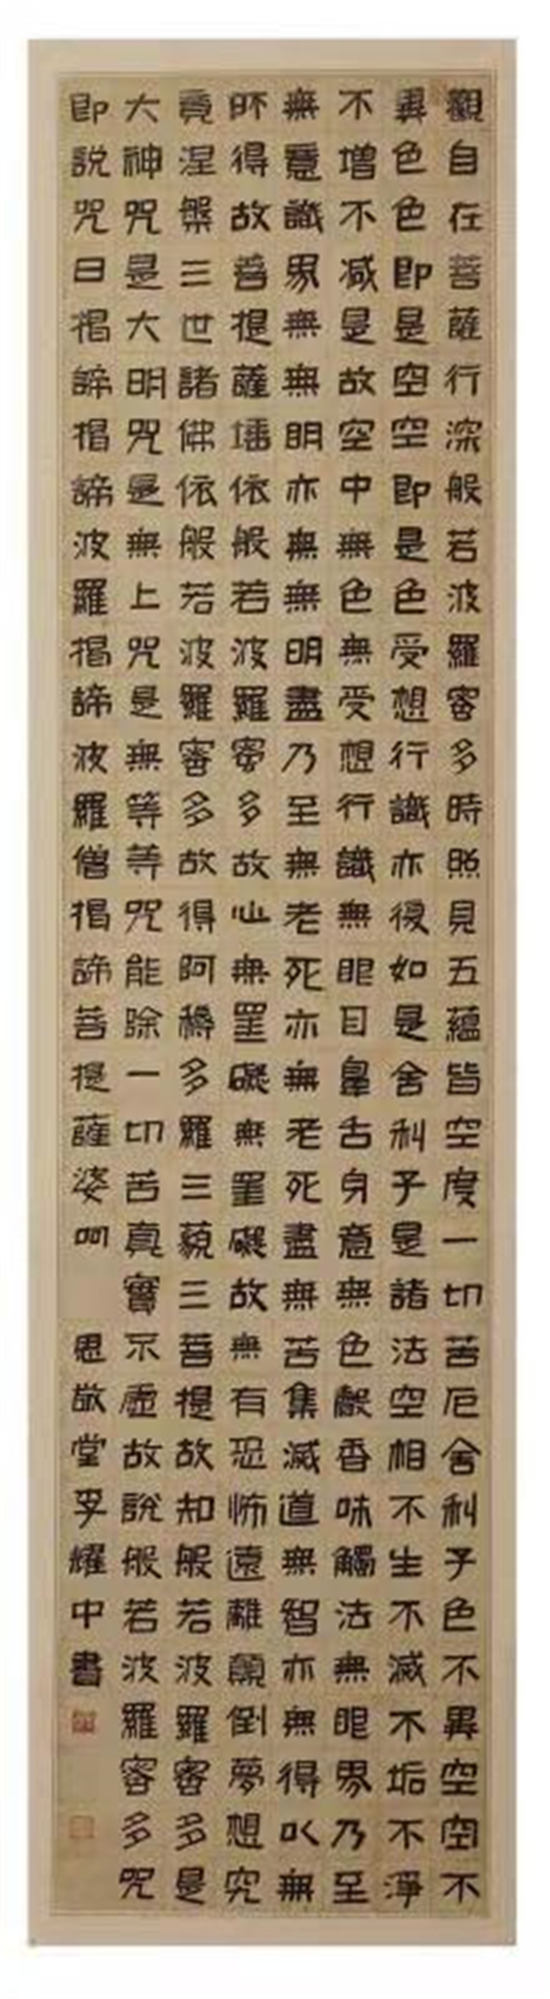 觀自在菩薩行深般若波羅密多時照見五蘊皆空度一切苦厄舍利子色不異空空不
異色色即是空空即是色受想行識亦復如是舍利子是諸法空相不生不滅不垢不淨
不增不減是故空中無色無受想行識無眼目鼻舌身意無色聲香味觸法無眼界乃至
無意識界無無明亦無無明盡乃至無老死亦無老死盡無苦集滅道無智亦無得以無
所得故菩提薩埵依般若波羅蜜多故心無罣礙無罣礙故無有恐怖遠離顛倒夢想究
竟涅槃三世諸佛依般若波羅密多故得阿耨多羅三藐三菩提故知般若波羅密多是
大神咒是大明咒是無上咒是無等等咒能除一切苦真實不虛故說般若波羅密多咒
即說咒曰揭諦揭諦波羅揭諦波羅僧揭諦菩提薩婆呵 思敬堂李耀中書